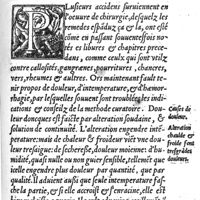 Lusieurs accidens surviennent en
l'oeuure de chirurgie, desquelz les
remedes espãduz ça & la, ont esté
cõme en passant souuentesfois no-
tés es liures & chapitres prece-
dens, comme ceulx qui sont vtilz
contre callosités, gangrenes, pourritures, chancres,
vers, rheumes & aultres. Ors maintenant fault te-
nir propos de douleur, d'intemperature, & d'hæmor-
rhagie, par lesquelles souuent sont troublées les indi-
cations & conseilz de la methode curatoire. Dou-
leur doncques est faicte par alteration soudaine, &
solution de continuité. L'alteration engendre inté-
perature: mais de chaleur & froideur viêt vne dou-
leur tresaigue: de secheresse, douleur moienne: d'hu-
midité, quasi nulle ou non guier sensible, tellemêt que
ielle engendre plus douleur par quantité, que par
ualité. Il aduient aussi que seule intemperature fas-
che la partie, & si elle accroist & s'enracine, elle est
Causes de
douleurs.
Alteration
chaulde &
froide sont
tresgrãdes
douleurs.